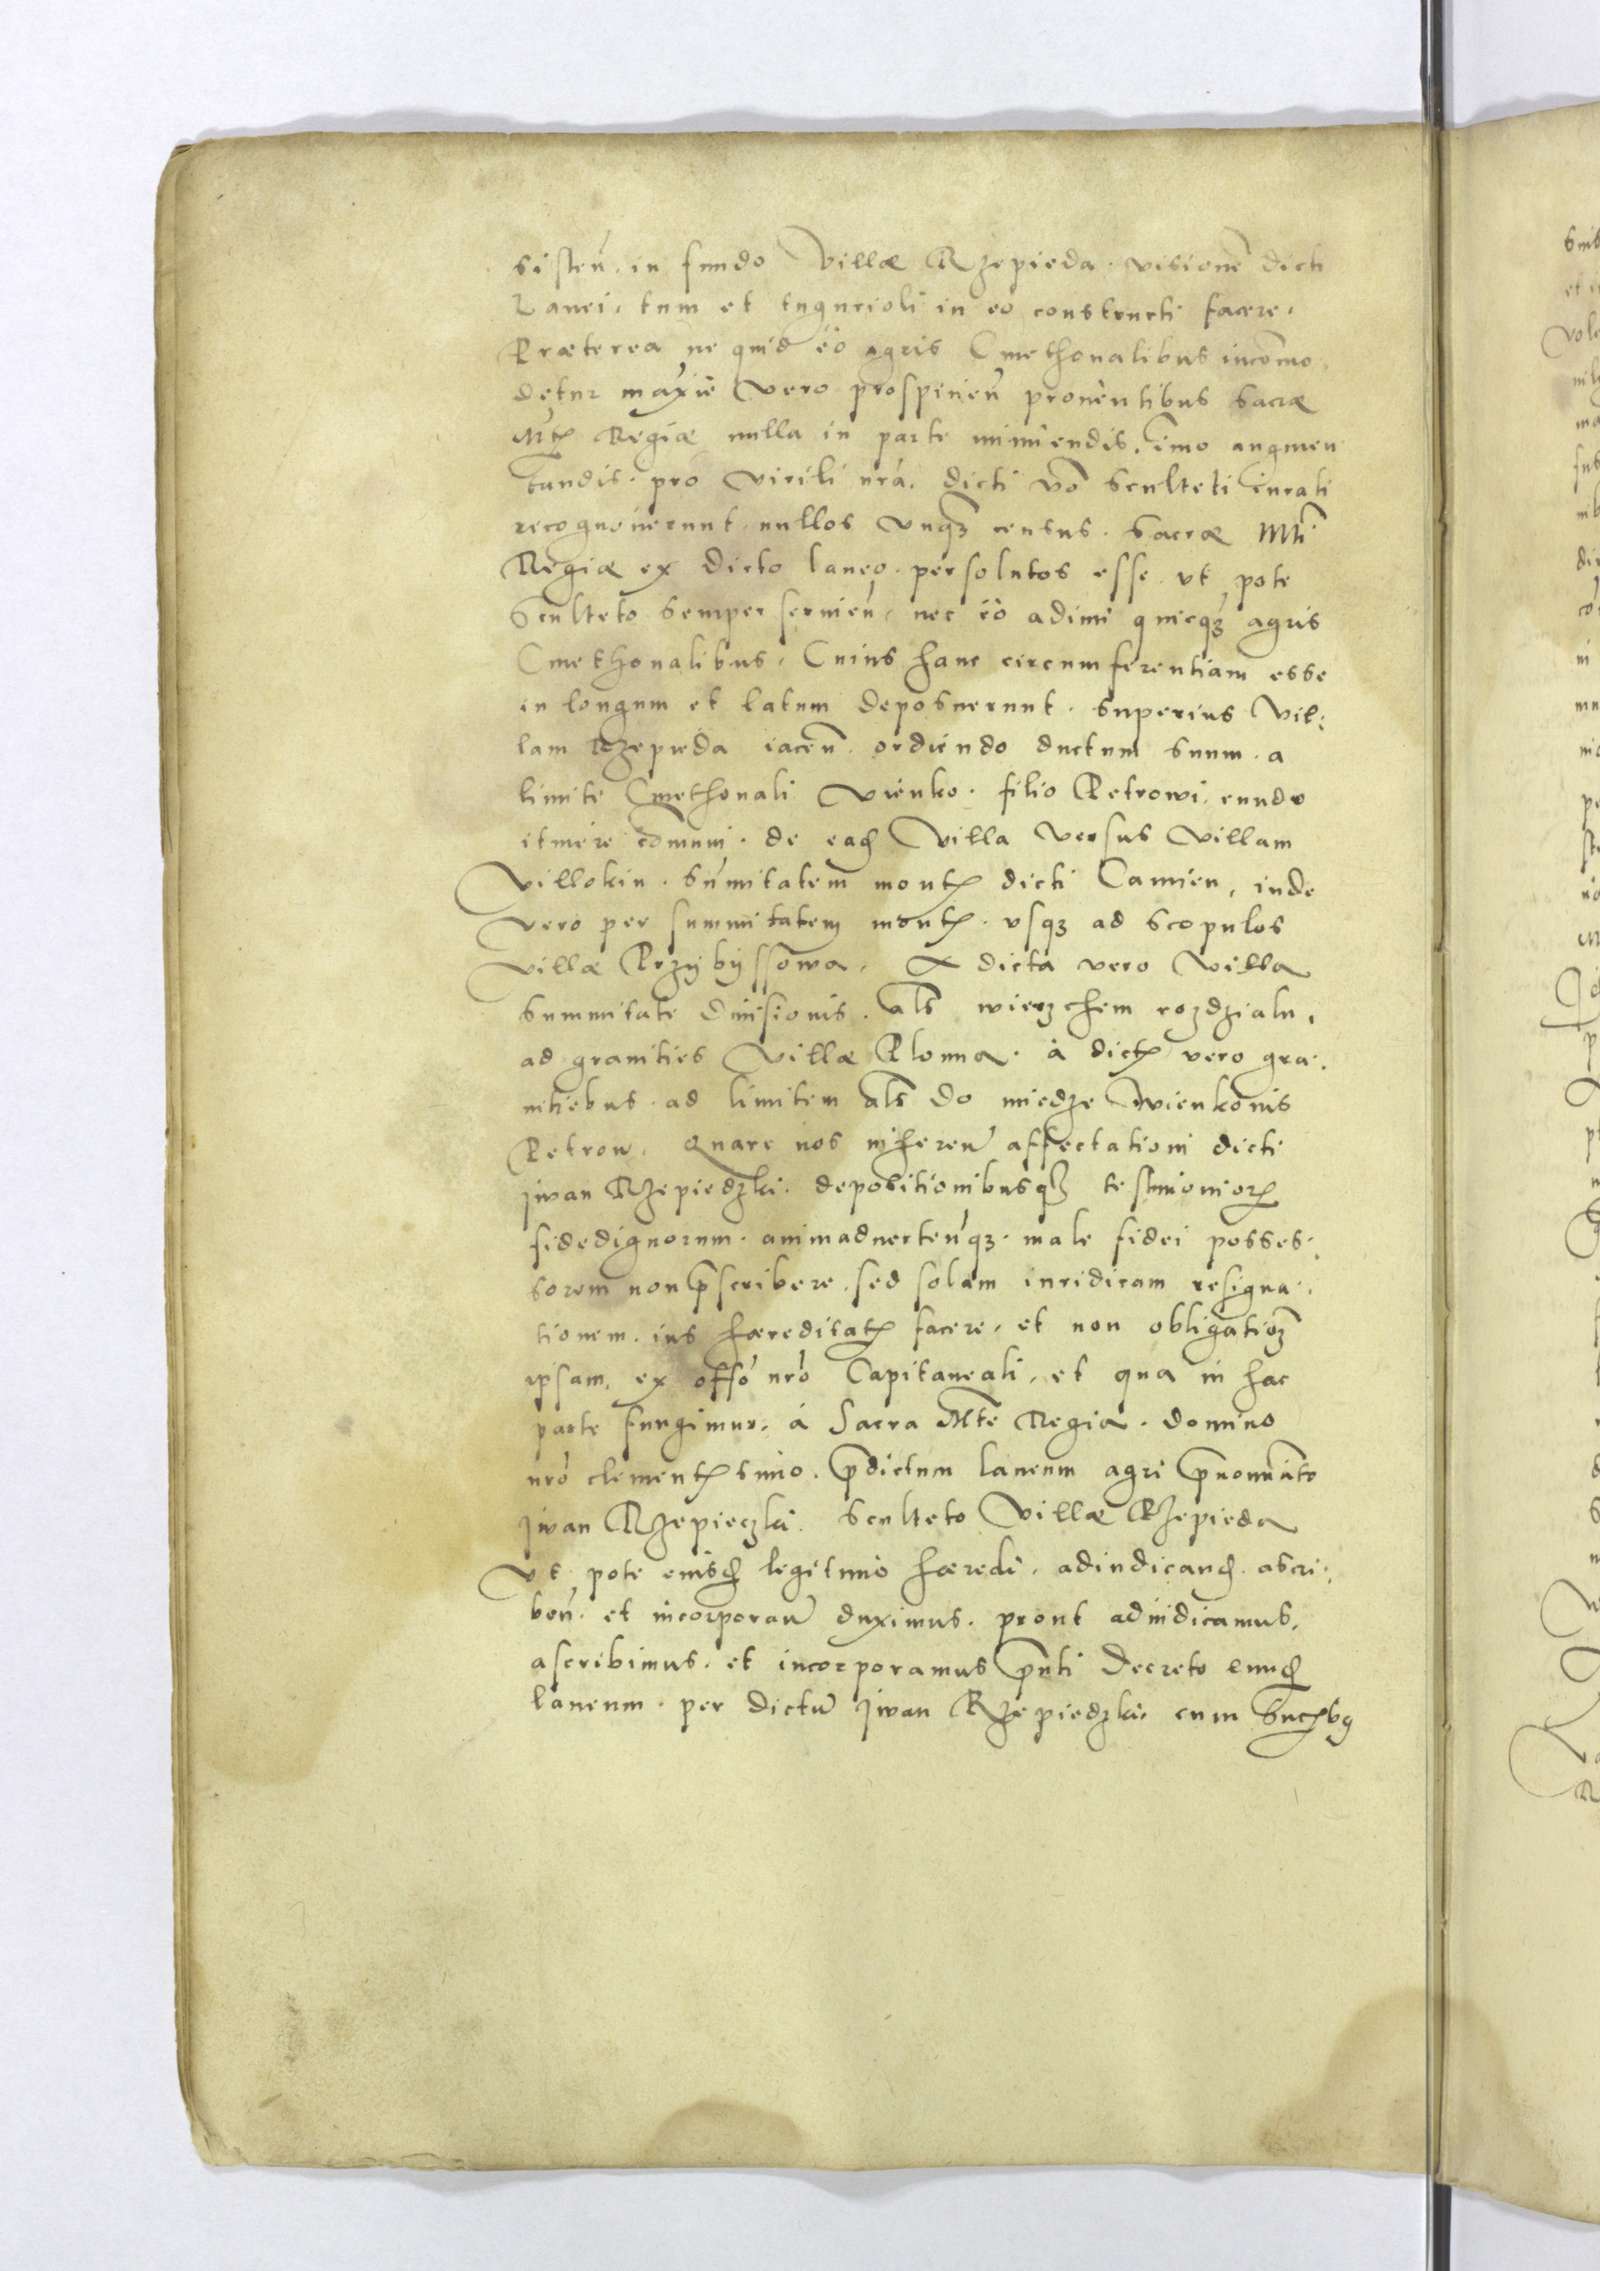 sisteñ. in fundo Villæ Rzepieda. visionē dicti
Lanei, tum et tugurioli in eo constructi facere.
Præterea ne quid eò agris Cmethonalibus incōmo
detur maxīe vero prospicieñ prouentibus Sacræ
Mtis Regiæ nulla in parte minuendis, imo augmen
tandis. pro virili nrā. dicti vō Sculteti iurati
recognouerunt. nullos vnqȝ census. Sacræ Mti
Regiæ ex dicto laneo. persolutos esse. vt pote
Sculteto semper seruieñ, nec eò adimi quicqȝ agris
Cmethonalibus. Cuius hanc circumferentiam esse
in longum et latum deposuerunt. superius Vil:
lam Rzepieda iaceñ. ordiendo ductum suum. a
limite Cmethonali Vienko. filio Petrowi, eundo
itinere cōmuni. de ead Villa versus Villam
Villokin. sūmitatem montis dicti Camien, inde
vero per summitatem montis. vsqȝ ad scopulos
villæ Przybyssowa. A dicta vero Villa
summitate diuisionis. als wierzchem rozdzialu,
ad granities Villæ Plonna. à dictis vero gra:
nitiebus. ad limitem als do miedze Wienkonis
Petrow. Quare nos inhereñ affectationi dicti
Jwan Rzepiedzki. depositionibusqȝ testimonior
fidedignorum. animaduerteñqȝ. male fidei posses:
sorem non p̄scribere, sed solam iuridicam resigna:
tionem. ius hæreditatis facere, et non obligatioȝ
ipsam, ex offō nrō Capitaneali, et qua in hac
parte fungimur, à Sacra Mte Regia. domino
nrō clementissimo. p̄dictum laneum agri p̄nomīato
Jwan Rzepieczki. Sculteto Villæ Rzepieda
vt pote eiusd legitimo hæredi, adiudicand. ascri:
beñ. et incorporañ duximus. prout adiudicamus,
ascribimus. et incorporamus p̄nti Decreto eund
laneum. per dictū Jwan Rzepiedzki, cum Succbȝ